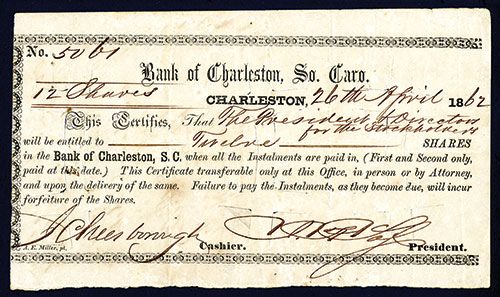 No. 5061
Bank of Charleston, So. Caro.
12 Shares
CHARLESTON, 26th April 1862
This Certifies, That The President & Directors
for the Stockholders
will be entitled to Twelve SHARES
in the Bank of Charleston, S.C. when all the Instalments are paid in, (First and Second only,
paid at this date.) This Certificate transferable only at this Office, in person or by Attorney,
and upon the delivery of the same. Failure to pay the Instalments, as they become due, will incur
forfeiture of the Shares.
J Cheesborough
Cashier.
President.
A. E. Miller, pt.